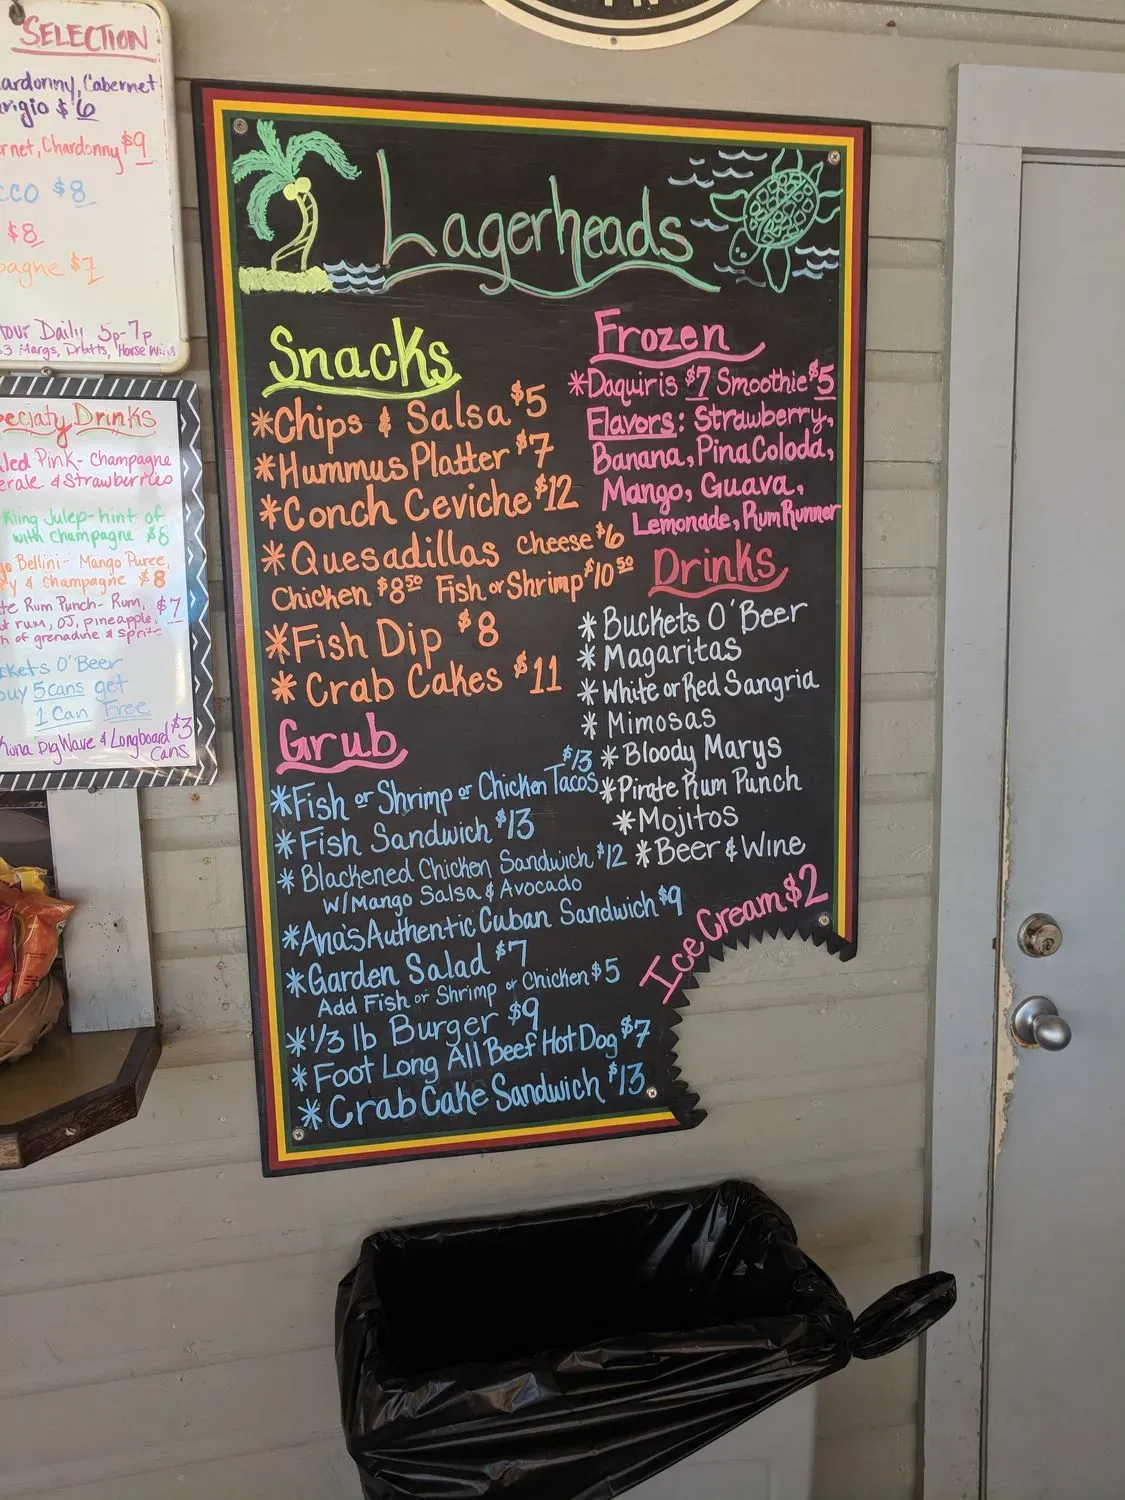 SELECTION
Cabernet
$6
Chardonny $9
$8
$8
$7
Daily 5p-7p
Margs, Drafts, House
Drinks
Pink- Champagne
& Strawberries
Julep- hint of
with champagne $8
Bellini- Mango Puree,
& Champagne $8
Rum Punch- Rum, $7
rum, OJ, pineapple,
of grenadine & sprite
O'Beer
buy 5 cans get
1 Can Free
Big Wave & Longboard $3
Cans
Lagerheads
Snacks
*Chips & Salsa $5
*Hummus Platter $7
*Conch Ceviche $12
*Quesadillas cheese $6
Chicken $8.50 Fish or Shrimp $10.50
*Fish Dip $8
*Crab Cakes $11
Grub
*Fish or Shrimp or Chicken Tacos $13
*Fish Sandwich $13
*Blackened Chicken Sandwich $12
w/Mango Salsa & Avocado
*Ana's Authentic Cuban Sandwich $9
*Garden Salad $7
Add Fish or Shrimp or Chicken $5
*1/3 lb Burger $9
*Foot Long All Beef Hot Dog $7
*Crab Cake Sandwich $13
Frozen
*Daquiris $7 Smoothie $5
Flavors: Strawberry,
Banana, Pina Coloda,
Mango, Guava,
Lemonade, Rum Runner
Drinks
*Buckets O'Beer
*Magaritas
*White or Red Sangria
*Mimosas
*Bloody Marys
*Pirate Rum Punch
*Mojitos
*Beer & Wine
Ice Cream $2